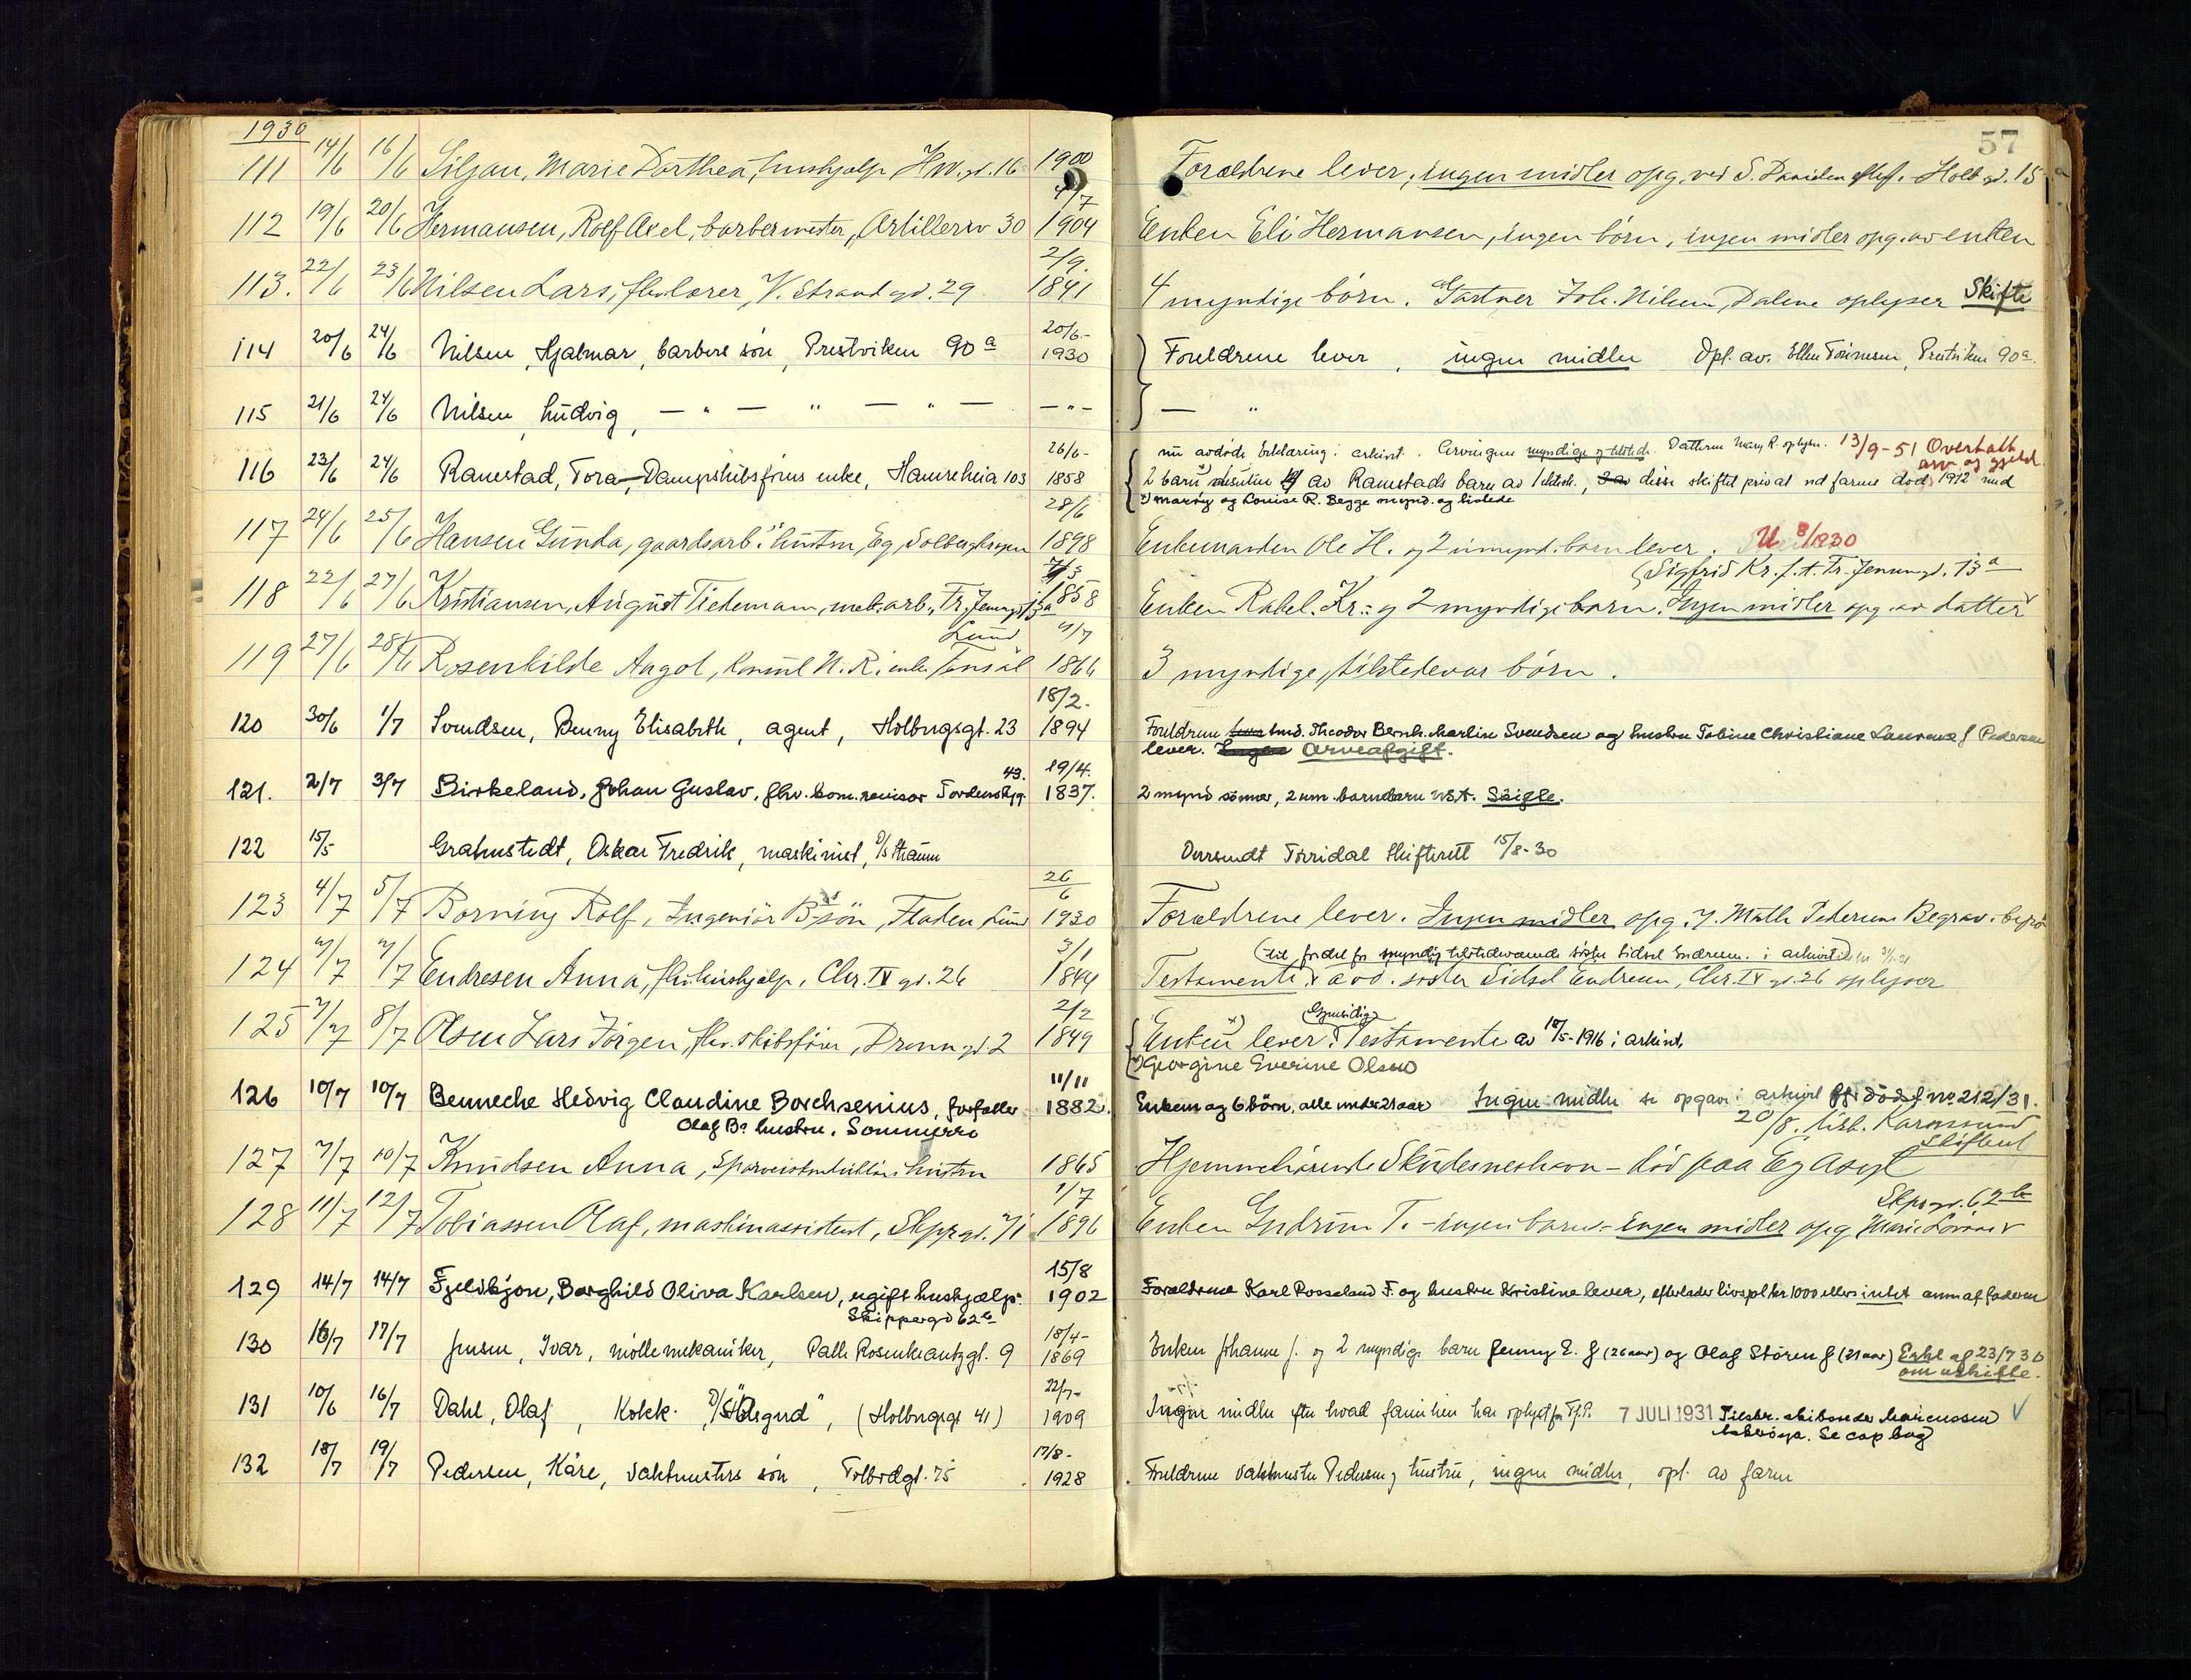 1930
57
111 14/6 16/6 Siljan, Marie Dorthea, hushjælp H.W.gd. 16 1900 Forældrene lever, ingen midler opg. ved S. Holb gd. 15
4/7
112 19/6 20/6 Hermansen, Rolf Axel, barbermester, Artilleriv 30 1904 Enken Eli Hermansen, ingen børn, ingen midler opg. av enken
2/9.
113. 22/6 23/6 Nilsen Lars, fhv. lærer, V. Strand gd. 29 1841 4 myndige børn. Gartner Joh. Nilsen, Dalene oplyser Skifte
20/6-
114 20/6 24/6 Nilsen, Hjalmar, barbers søn, Prestviken 90 a 1930 Foreldrene lever, ingen midler Opl. av. Ellen Tønnesen, Prestviken 90 a.
115 21/6 24/6 Nilsen, Ludvig, — " — " — " — — " — — "
nu avdøde Erklæring i arkivet. Arvingene myndige og tilstede. Datteren Mary R. oplyser. 13/9-51 Overtatt
26/6- arv og gjeld.
116 23/6 24/6 Ramstad, Tora, Dampskibsførers enke, Hamreheia 103 1858 2 barn av Ramstads barn av 1 ektesk., disse skiftet privat ved farens død 1912 med
x) Mary og Louise R. Begge mynd. og tilstede
28/6
117 24/6 25/6 Hansen Gunda, gaardsarb.s hustru, Eg, 1898 Enkemanden Ole H. og 2 umynd. børn lever. U 8/1930
7/3 Sigfrid Kr. f. A. Tr. Jenum gd. 13 a
118 22/6 27/6 Kristiansen, August Tidemam, mek. arb., Tr. 13a 1858 Enken Rakel Kr. og 2 myndige barn. Ingen midler opg. av datter
Lund 4/7
119 27/6 28/6 Rosenkilde Aagot, konsul N. R.s enke 1866 3 myndige, tilstedevær børn.
18/2.
120 30/6 1/7 Svendsen, Benny Elisabeth, agent, Holbergsgt. 23 1894 Foreldrene smd. Theodor Bernh. Martin Svendsen og hustru Tobine Christiane Laurense f Pedersen
lever. Ingen Arveafgift.
43. 19/4.
121. 2/7 3/7 Birkeland, Johan Gustav, fhv. kom. revisor Tordenskj.g. 1837. 2 mynd sønner, 2 um. barnebarn U.S.A. Skifte.
122 15/5 Grahnstedt, Oskar Fredrik, maskinist, D/S Straum Oversendt Torridal Skifterett 15/8-30
26/6
123 4/7 5/7 Borning Rolf, Ingeniør B.s søn, Fladen Lund 1930 Forældrene lever. Ingen midler opg. J. Math Pedersens Begrav. byrå
3/1 for myndig tilstedeværende søster Sidsel Endresen. i arkivet
124 7/7 7/7 Endresen Anna, fhv. hushjælp, Chr. IV gd. 26 1844 Testamente, avd. søster Sidsel Endresen, Chr. IV gd. 26 oplyser
2/2 (Gjensidig)
125 7/7 8/7 Olsen Lars Jørgen, fhv. skibsfører, Dronn gd 2 1849 Enken x) lever. Testamente av 18/5-1916 i arkivet.
x) Georgine Everine Olsen
11/11
126 10/7 10/7 Benneche Hedvig Claudine Borchsenius, forfatter 1882. Enkem og 6 børn, alle under 21 aar Ingen midler se opgave i arkivet no 212/31.
Olaf B.s hustru. Sommerro 20/8. tilb. Karmsund
Skifteret
127 7/7 10/7 Knudsen Anna, hustru 1865 Hjemmehørende Skudeneshavn – død paa Eg Asyl
1/7 Skprgd. 62 b
128 11/7 12/7 Tobiassen Olaf, maskinassistent, Skprgd. 1896 Enken Gudrun T. – ingen barn – ingen midler opg. Marie
15/8
129 14/7 14/7 Fjeldskjøn, Borghild Oliva Karlsen, ugift hushjælp 1902 Forældrene Karl Rosseland F. og hustru Kristine lever, efterlader livspl kr 1000 ellers intet anm af faderen
Skippergd 62 b
18/4-
130 16/7 17/7 Jensen, Ivar, møllemekaniker, Palle Rosenkrantzgt. 9 1869 Enken Johanne J. og 2 myndige barn Jenny E. J (26 aar) og Olaf Støren J (21 aar) Erkl af 23/7 30
om uskifte.
22/7-
131 10/6 16/7 Dahl, Olaf, Kokk. D/S "Ølsgard", (Holbergsgt 41) 1909 Ingen midler efter hvad familien har oplyst 7 JULI 1931 Tilskr. skibsreder Marcussen
Se cop bog
17/8-
132 18/7 19/7 Pedersen, Kåre, vaktmesters søn, Tolbodgt. 75 1928 Foreldrene vaktmester Pedersen og hustru, ingen midler, opl. av faren